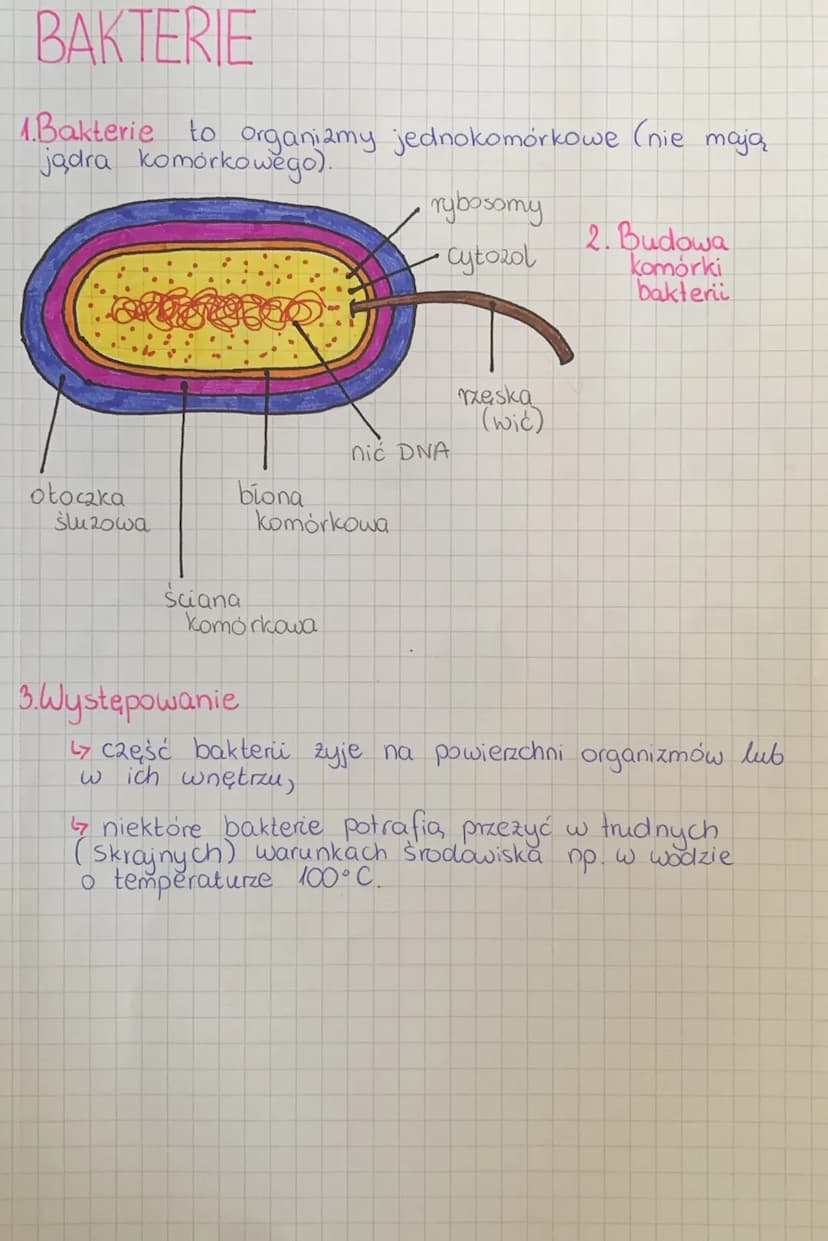 BAKTERIE
1. Bakterie to organizmy jednokomórkowe (nie mają
jądra komórkowego).
rybosomy
cytozol
2. Budowa
komórki
bakterii
rzęska
(wić)
nić DNA
otoczka
śluzowa
błona
komórkowa
ściana
komórkowa
3. Występowanie
↳ część bakterii żyje na powierzchni organizmów lub
w ich wnętrzu,
↳ niektóre bakterie potrafią przeżyć w trudnych
(skrajnych) warunkach środowiska np. w wodzie
o temperaturze 100°C.